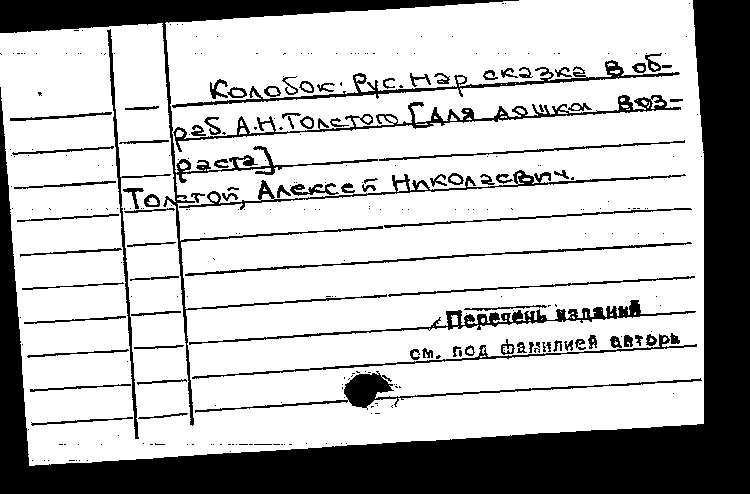 Колобок: Рус. нар сказка в об-
раб. А.Н. Толстого. [Для дошкол воз-
раста].
Толстой, Алексей Николаевич.
Перечень изданий
см. под фамилией автора